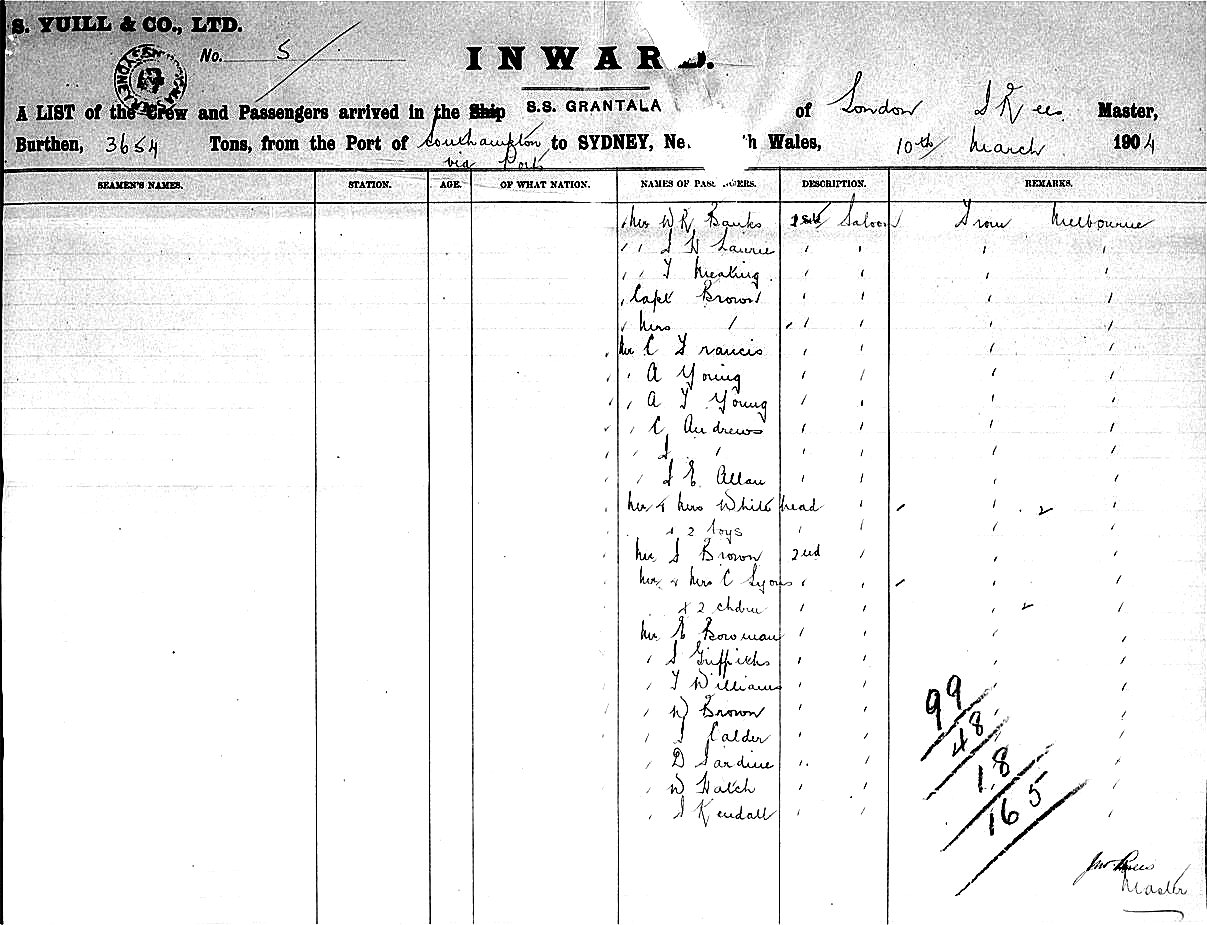 S. YUILL & CO., LTD.
No. 5
INWARD.
A LIST of the Crew and Passengers arrived in the Ship S.S. GRANTALA of London J Rees Master,
Burthen, 3654 Tons, from the Port of Southampton to SYDNEY, Ne h Wales, 10th March 1904
via Ports
SEAMEN'S NAMES. STATION. AGE. OF WHAT NATION. NAMES OF PASSENGERS. DESCRIPTION. REMARKS.
W R Banks Saloon From Melbourne
" J H Laurie " " " "
" T Meaking " " " "
Capt Brown " " " "
Mrs " " " " "
Mr C Francis " " " "
" A Young " " " "
" A T Young " " " "
" C Andrews " " " "
" J " " " " "
" J E Allan " " " "
Mr & Mrs Whitehead " " " "
& 2 boys " " " "
Mr J Brown 2nd " " "
Mr & Mrs C Lyons " " " "
& 2 chdrn " " " "
Mr E Bowman " " " "
" J Griffiths " " " "
" T Williams " " " "
" W Brown " " " "
" J Calder " " " "
" D Jardine " " " "
" W Hatch " " " "
" J Kendall " " " "
99
48
18
165
Jno Rees
Master